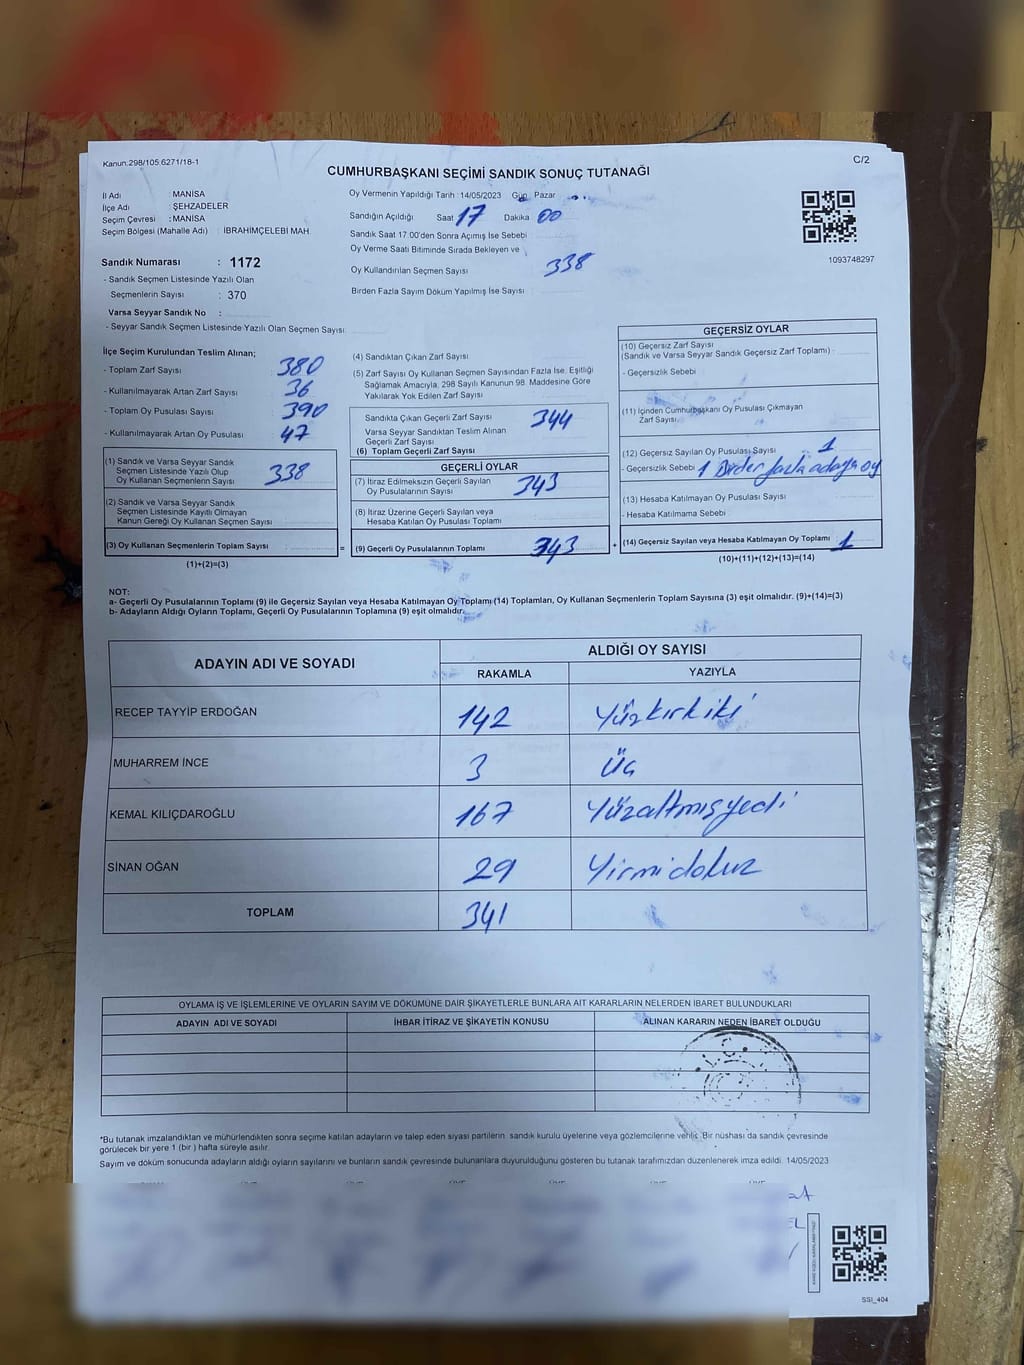 Kanun:298/105 6271/18-1
C/2
CUMHURBAŞKANI SEÇİMİ SANDIK SONUÇ TUTANAĞI
İl Adı : MANİSA
İlçe Adı : ŞEHZADELER
Seçim Çevresi : MANİSA
Seçim Bölgesi (Mahalle Adı) : İBRAHİMÇELEBİ MAH.
Oy Vermenin Yapıldığı Tarih :14/05/2023 Gün Pazar
Sandığın Açıldığı Saat 17 Dakika 00
Sandık Saat 17.00'den Sonra Açımış İse Sebebi
Oy Verme Saati Bitiminde Sırada Bekleyen ve
Oy Kullandırılan Seçmen Sayısı 338
Birden Fazla Sayım Döküm Yapılmış İse Sayısı :
1093748297
Sandık Numarası : 1172
- Sandık Seçmen Listesinde Yazılı Olan
Seçmenlerin Sayısı : 370
Varsa Seyyar Sandık No :
- Seyyar Sandık Seçmen Listesinde Yazılı Olan Seçmen Sayısı:
İlçe Seçim Kurulundan Teslim Alınan;
- Toplam Zarf Sayısı 380
- Kullanılmayarak Artan Zarf Sayısı 36
- Toplam Oy Pusulası Sayısı 390
- Kullanılmayarak Artan Oy Pusulası 47
(1) Sandık ve Varsa Seyyar Sandık
Seçmen Listesinde Yazılı Olup
Oy Kullanan Seçmenlerin Sayısı 338
(2) Sandık ve Varsa Seyyar Sandık
Seçmen Listesinde Kayıtlı Olmayan
Kanun Gereği Oy Kullanan Seçmen Sayısı :
(3) Oy Kullanan Seçmenlerin Toplam Sayısı :
(1)+(2)=(3)
(4) Sandıktan Çıkan Zarf Sayısı
(5) Zarf Sayısı Oy Kullanan Seçmen Sayısından Fazla İse, Eşitliği
Sağlamak Amacıyla, 298 Sayılı Kanunun 98. Maddesine Göre
Yakılarak Yok Edilen Zarf Sayısı
Sandıkta Çıkan Geçerli Zarf Sayısı 344
Varsa Seyyar Sandıktan Teslim Alınan
Geçerli Zarf Sayısı
(6) Toplam Geçerli Zarf Sayısı
GEÇERLİ OYLAR
(7) İtiraz Edilmeksizin Geçerli Sayılan
Oy Pusulalarının Sayısı 343
(8) İtiraz Üzerine Geçerli Sayılan veya
Hesaba Katılan Oy Pusulası Toplamı
= (9) Geçerli Oy Pusulalarının Toplamı 343 +
GEÇERSİZ OYLAR
(10) Geçersiz Zarf Sayısı
(Sandık ve Varsa Seyyar Sandık Geçersiz Zarf Toplamı) :
- Geçersizlik Sebebi :
(11) İçinden Cumhurbaşkanı Oy Pusulası Çıkmayan
Zarf Sayısı
(12) Geçersiz Sayılan Oy Pusulası Sayısı : 1
- Geçersizlik Sebebi : 1 Birden fazla adaya oy
(13) Hesaba Katılmayan Oy Pusulası Sayısı :
- Hesaba Katılmama Sebebi :
(14) Geçersiz Sayılan veya Hesaba Katılmayan Oy Toplamı : 1
(10)+(11)+(12)+(13)=(14)
NOT:
a- Geçerli Oy Pusulalarının Toplamı (9) ile Geçersiz Sayılan veya Hesaba Katılmayan Oy Toplamı (14) Toplamları, Oy Kullanan Seçmenlerin Toplam Sayısına (3) eşit olmalıdır. (9)+(14)=(3)
b- Adayların Aldığı Oyların Toplamı, Geçerli Oy Pusulalarının Toplamına (9) eşit olmalıdır.
ADAYIN ADI VE SOYADI
ALDIĞI OY SAYISI
RAKAMLA YAZIYLA
RECEP TAYYİP ERDOĞAN 142 Yüzkırkiki
MUHARREM İNCE 3 Üç
KEMAL KILIÇDAROĞLU 167 Yüzaltmışyedi
SİNAN OĞAN 29 Yirmidokuz
TOPLAM 341
OYLAMA İŞ VE İŞLEMLERİNE VE OYLARIN SAYIM VE DÖKÜMÜNE DAİR ŞİKAYETLERLE BUNLARA AİT KARARLARIN NELERDEN İBARET BULUNDUKLARI
ADAYIN ADI VE SOYADI İHBAR İTİRAZ VE ŞİKAYETİN KONUSU ALINAN KARARIN NEDEN İBARET OLDUĞU
*Bu tutanak imzalandıktan ve mühürlendikten sonra seçime katılan adayların ve talep eden siyasi partilerin sandık kurulu üyelerine veya gözlemcilerine verilir. Bir nüshası da sandık çevresinde
görülecek bir yere 1 (bir ) hafta süreyle asılır.
Sayım ve döküm sonucunda adayların aldığı oyların sayılarını ve bunların sandık çevresinde bulunanlara duyurulduğunu gösteren bu tutanak tarafımızdan düzenlenerek imza edildi. 14/05/2023
SSİ_404